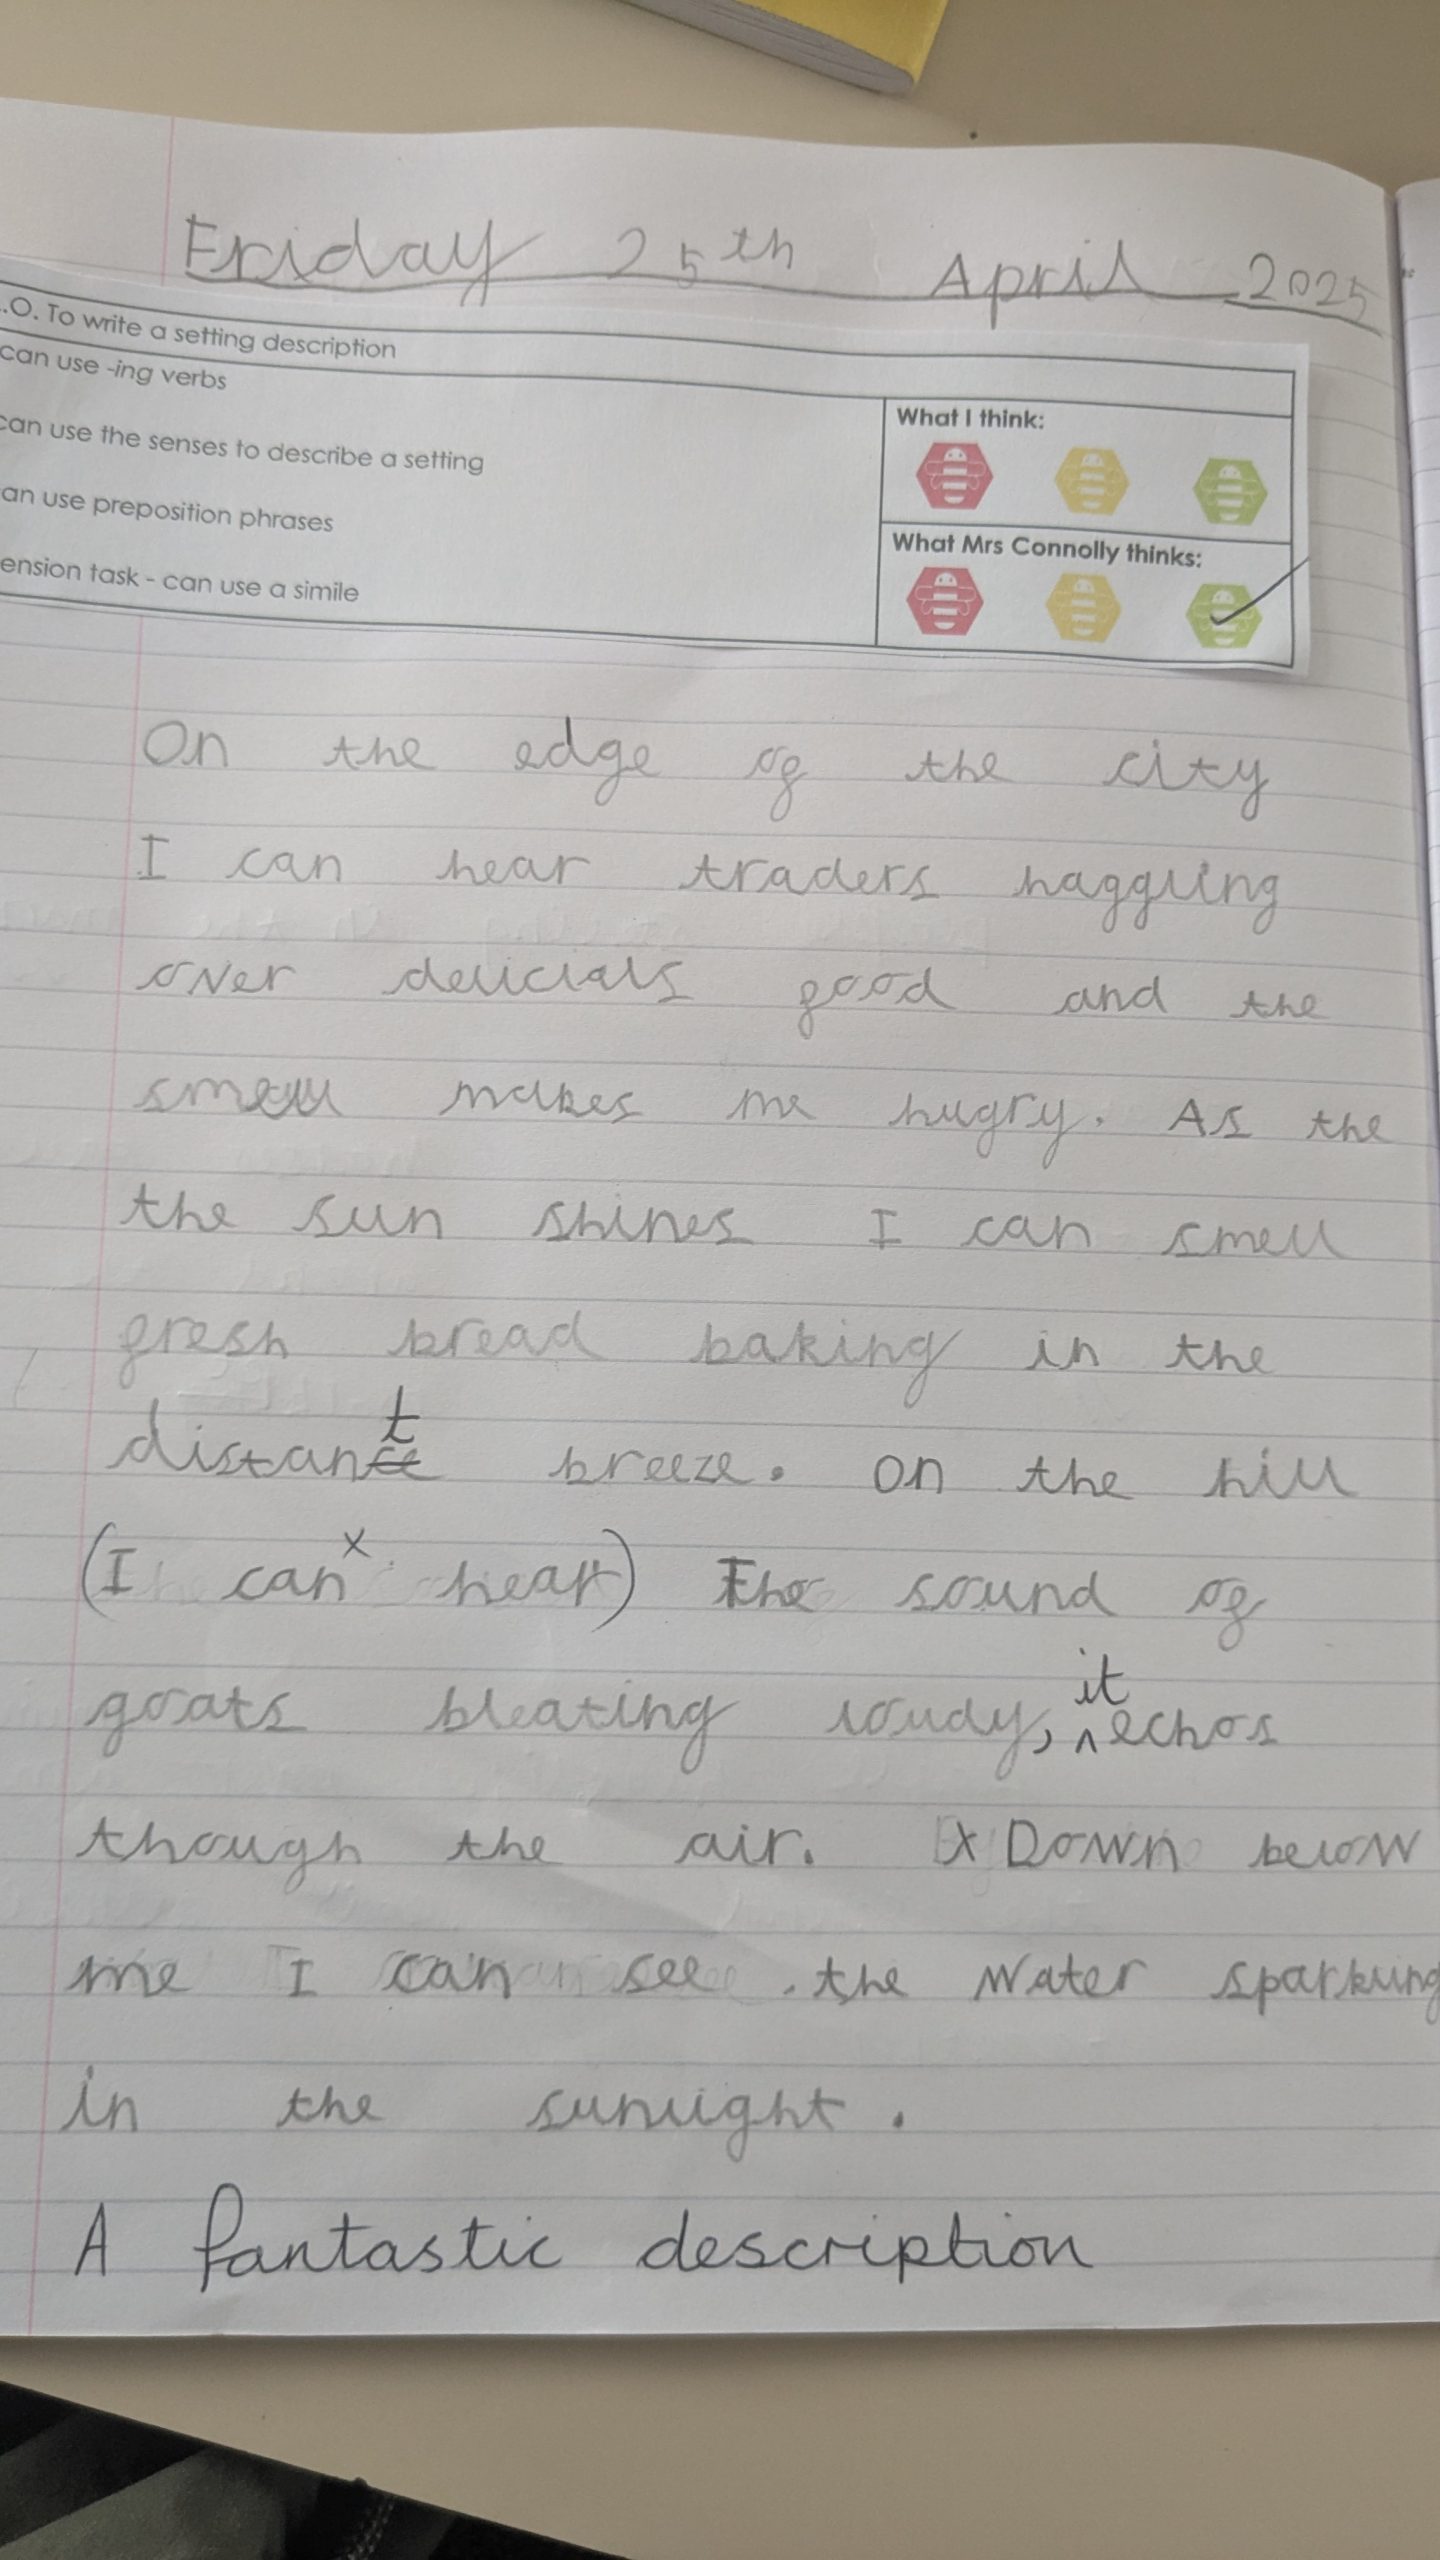 Friday 25th April 2025
.O. To write a setting description
can use -ing verbs
can use the senses to describe a setting
an use preposition phrases
ension task - can use a simile
What I think:
What Mrs Connolly thinks:
On the edge of the city
I can hear traders haggling
over delicials food and the
smell makes me hugry. As the
the sun shines I can smell
fresh bread baking in the
distant breeze. On the hill
(I can x hear) The sound of
goats bleating loudy, it echos
though the air. Down below
me I can see the water sparkling
in the sunlight.
A fantastic description